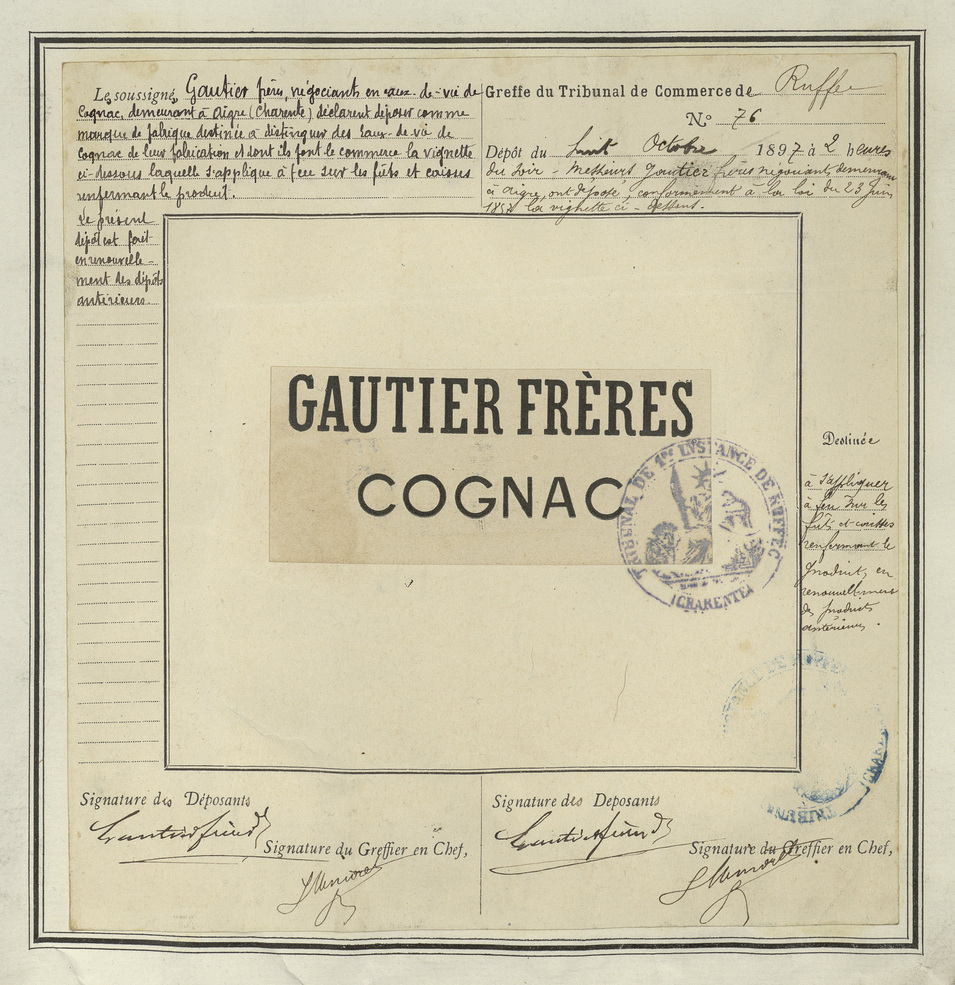 Les soussignés, Gautier frères, négociants en eaux-de-vie de
Cognac, demeurant à Aigre (Charente) déclarent déposer comme
marque de fabrique destinée à distinguer des Eaux-de-vie de
Cognac de leur fabrication et dont ils font le commerce la vignette
ci-dessous laquelle s'applique à feu sur les fûts et caisses
renfermant le produit.
Le présent
dépôt est fait
en renouvelle-
ment des dépôts
antérieurs.
Greffe du Tribunal de Commerce de Ruffec
N° 76
Dépôt du huit Octobre 1897 à 2 heures
du soir - Messieurs Gautier frères négociants, demeurant
à Aigre, ont déposé, conformément à la loi du 23 Juin
1857 la vignette ci-dessous.
GAUTIER FRÈRES
COGNAC
TRIBUNAL DE 1RE INSTANCE DE RUFFEC
(CHARENTE)
Destinée
à s'appliquer
à feu sur les
fûts et caisses
renfermant le
produit, en
renouvellement
des produits
antérieurs.
Signature des Déposants
Gautier frères
Signature du Greffier en Chef,
Signature des Deposants
Gautier frères
Signature du Greffier en Chef,